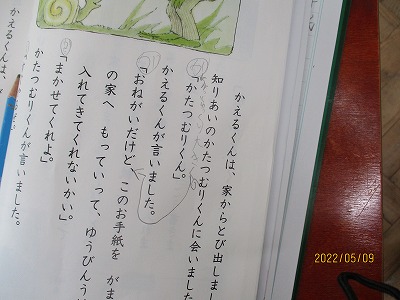 かえるくんは、家からとび出しまし
知りあいのかたつむりくんに会いました
「かたつむりくん。」
かえるくんが言いました。
「おねがいだけど、このお手紙を がま
の家へ もっていって、ゆうびんう
入れてきてくれないかい。」
「まかせてくれよ。」
かたつむりくんが言いました。
かえるくんは、
2022/05/09